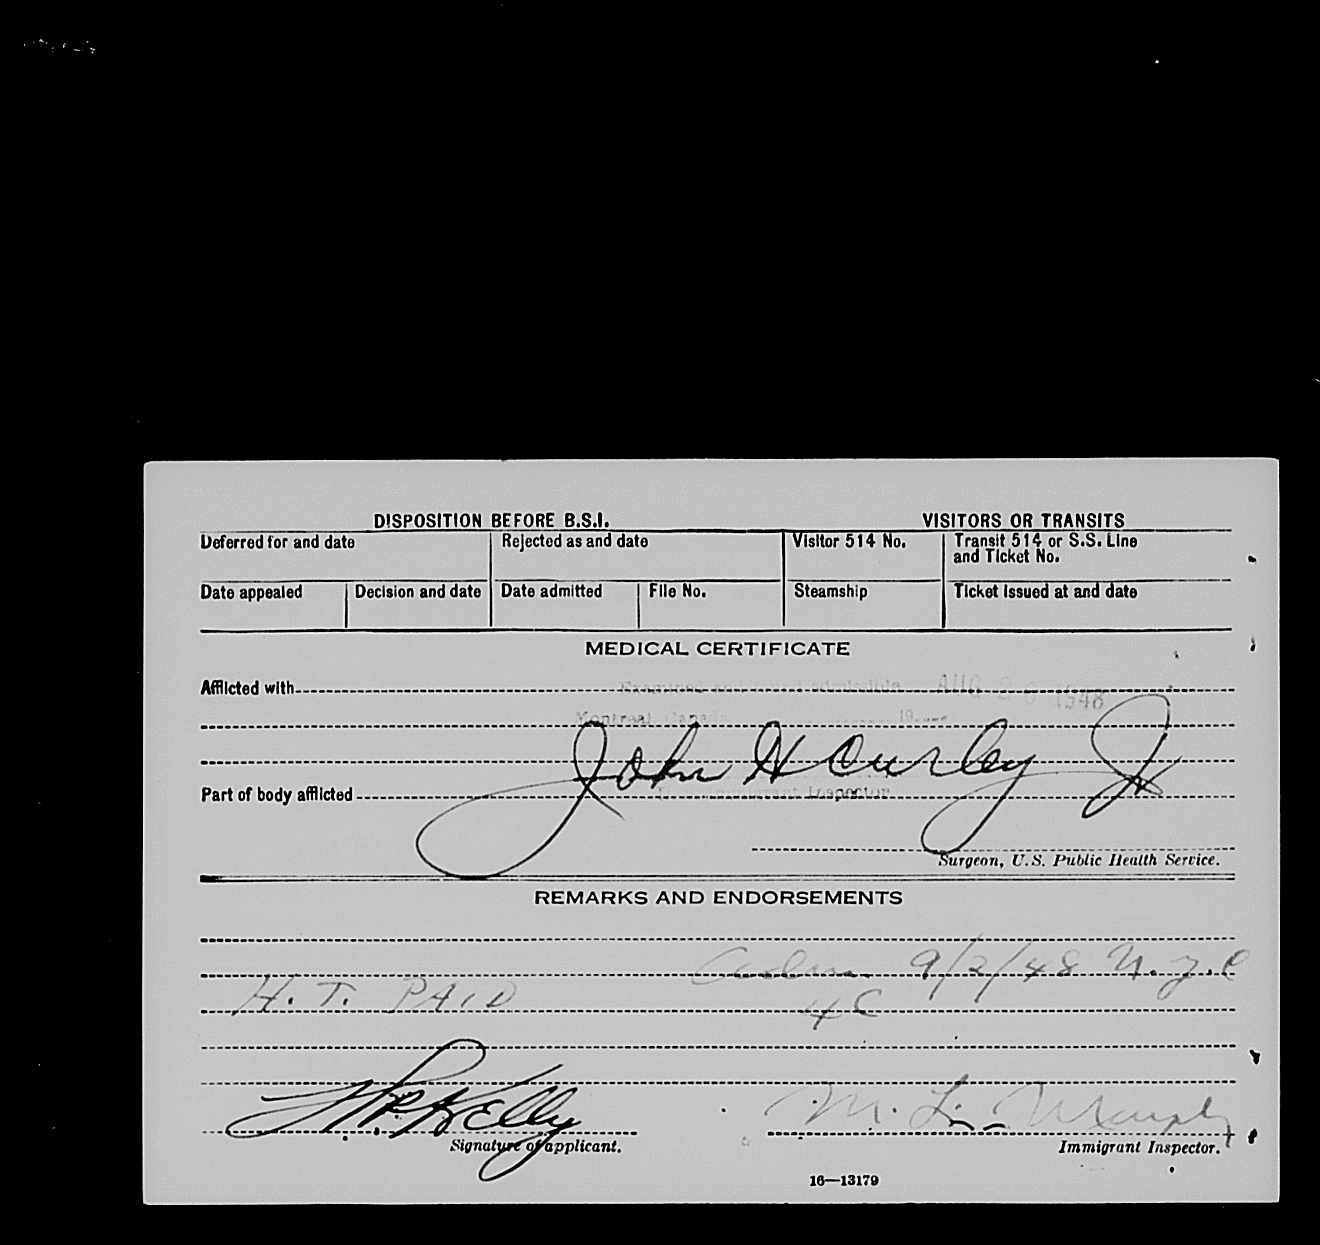 DISPOSITION BEFORE B.S.I. VISITORS OR TRANSITS
Deferred for and date Rejected as and date Visitor 514 No. Transit 514 or S.S. Line
and Ticket No.
Date appealed Decision and date Date admitted File No. Steamship Ticket issued at and date
MEDICAL CERTIFICATE
Afflicted with Examined and found admissible AUG 26 1948
Montreal Canada 19
John H Curley Jr
Part of body afflicted Immigrant Inspector
Surgeon, U.S. Public Health Service.
REMARKS AND ENDORSEMENTS
Adm. 9/2/48 N.Y.C
H.T. PAID 4C
Kelly M. L. Murphy
Signature of applicant. Immigrant Inspector.
16—13179